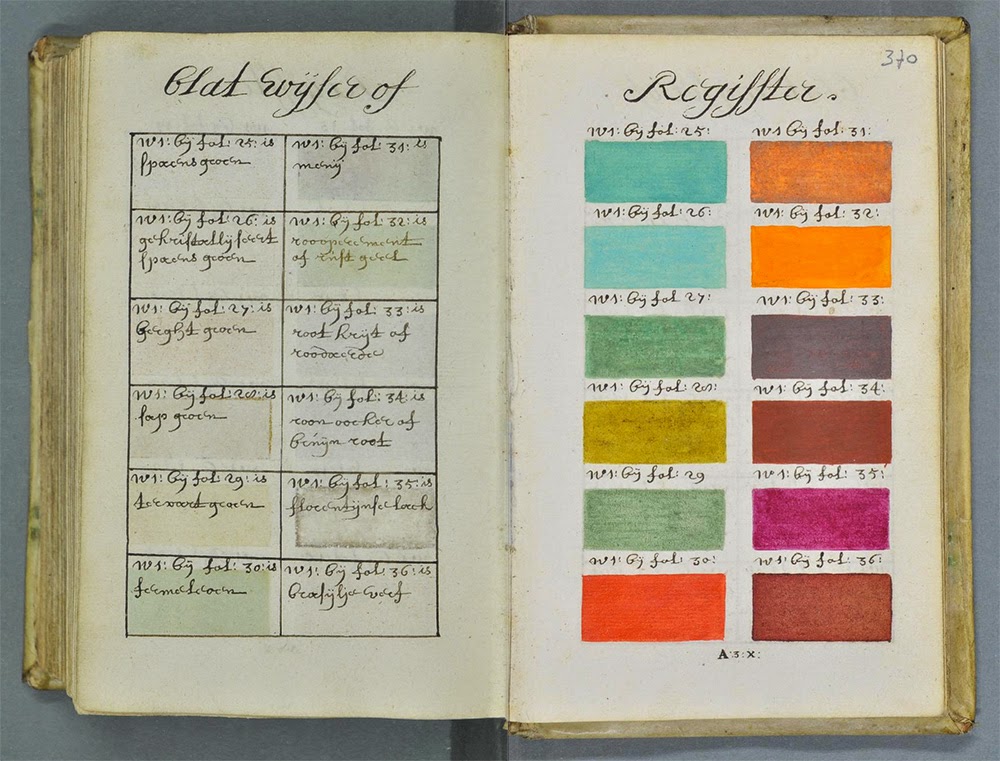 Blat wijser of
N1: bij fol: 25: is
spaens groen
N1: bij fol: 31: is
menij
N1: bij fol: 26: is
gekristallijseert
spaens groen
N1: bij fol: 32: is
roooperement
of rust geel
N1: bij fol: 27: is
berght groen
N1: bij fol: 33: is
root krijt of
roodaerde
N1: bij fol: 28: is
sap groen
N1: bij fol: 34: is
roon oocker of
bruijn root
N1: bij fol: 29: is
terwart groen
N1: bij fol: 35: is
florentijnse lack
N1: bij fol: 30: is
fermeloen
N1: bij fol: 36: is
brasijlje verf
370
Regisster.
N1: bij fol: 25:
N1: bij fol: 31:
N1: bij fol: 26:
N1: bij fol: 32:
N1: bij fol: 27:
N1: bij fol: 33:
N1: bij fol: 28:
N1: bij fol: 34:
N1: bij fol: 29
N1: bij fol: 35:
N1: bij fol: 30:
N1: bij fol: 36:
A:3:X: